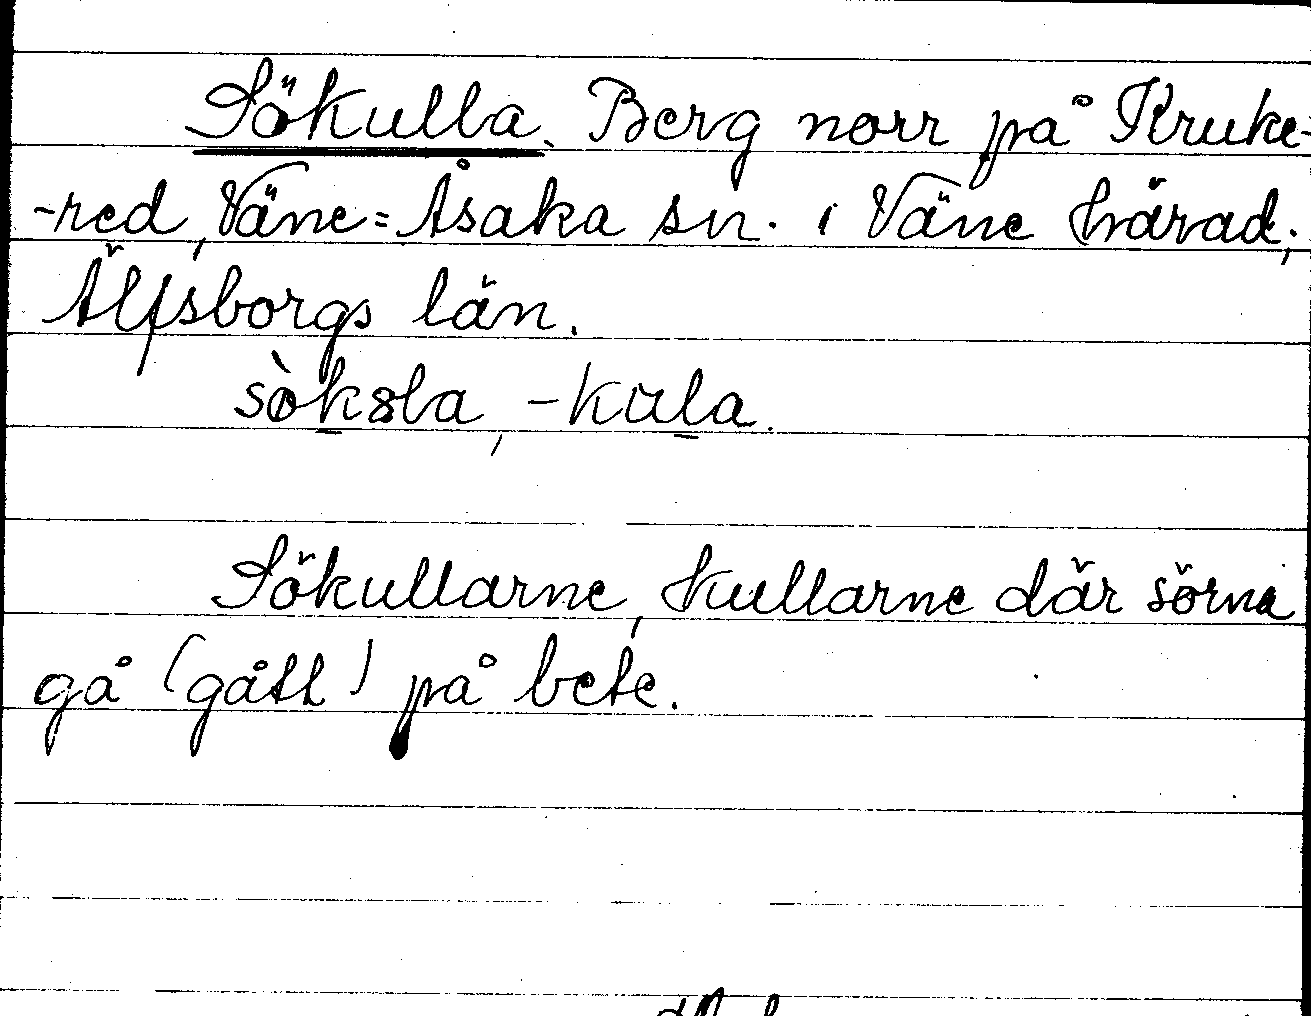 Sökulla. Berg norr på Kruke-
-red, Väne=Åsaka sn. i Väne härad,
Älfsborgs län.
sòk8la, -kula.
Sökullarne, kullarne där sörna
gå (gått) på bete.